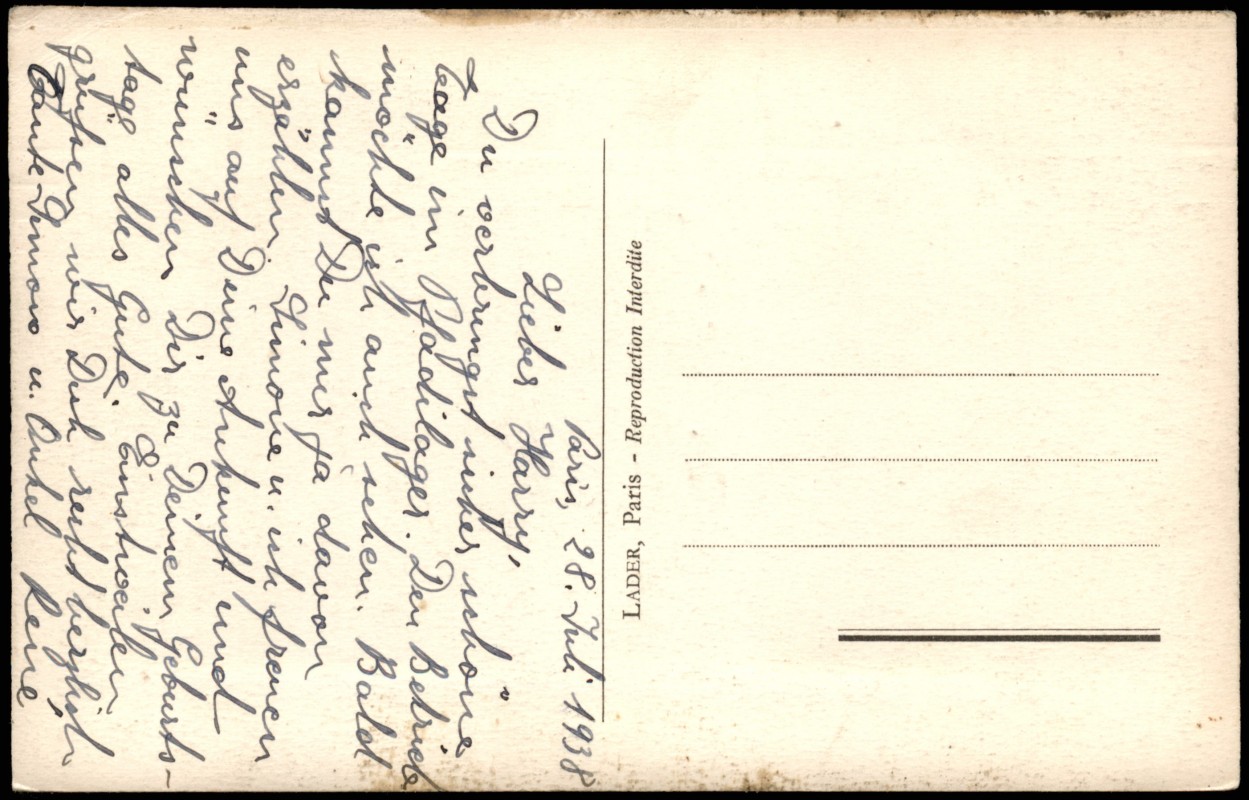 Paris, 28. Juli 1938
Lieber Harry,
Du verbringst sicher schöne
Tage im Pfadilager. Den Betrieb
möchte ich auch sehen. Bald
kannst Du mir ja davon
erzählen. Simone u. ich freuen
uns auf Deine Ankunft und
wünschen Dir zu Deinem Geburts-
tage alles Gute. Einstweilen
grüssen wir Dich recht herzlich
Tante Simone u. Onkel René
LADER, Paris - Reproduction Interdite